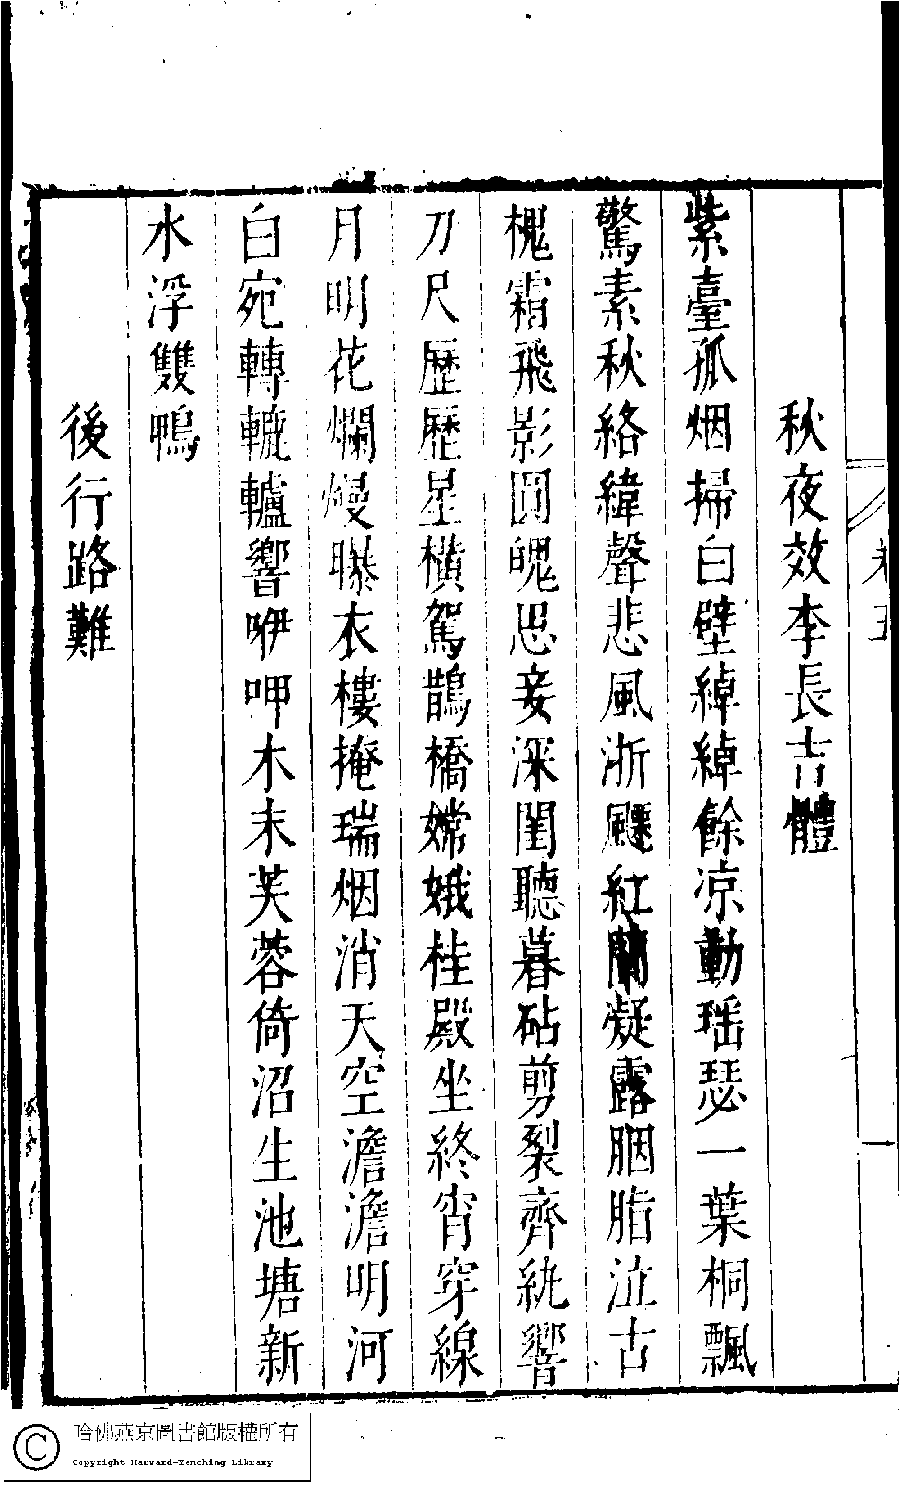 卷五
秋夜效李長吉體
紫臺孤烟掃白壁綽綽餘凉動瑶瑟一葉桐飄
驚素秋絡緯聲悲風浙飃紅蘭凝露胭脂泣古
槐霜飛影圓魄思妾深閨聽暮砧剪裂齊紈響
刀尺歷歷星橫駕鵲橋嫦娥桂殿坐終宵穿線
月明花爛熳曝衣樓掩瑞烟消天空澹澹明河
白宛轉轆轤響咿呷木末芙蓉倚沼生池塘新
水浮雙鴨
後行路難
哈佛燕京圖書館版權所有
Copyright Harvard-Yenching Library